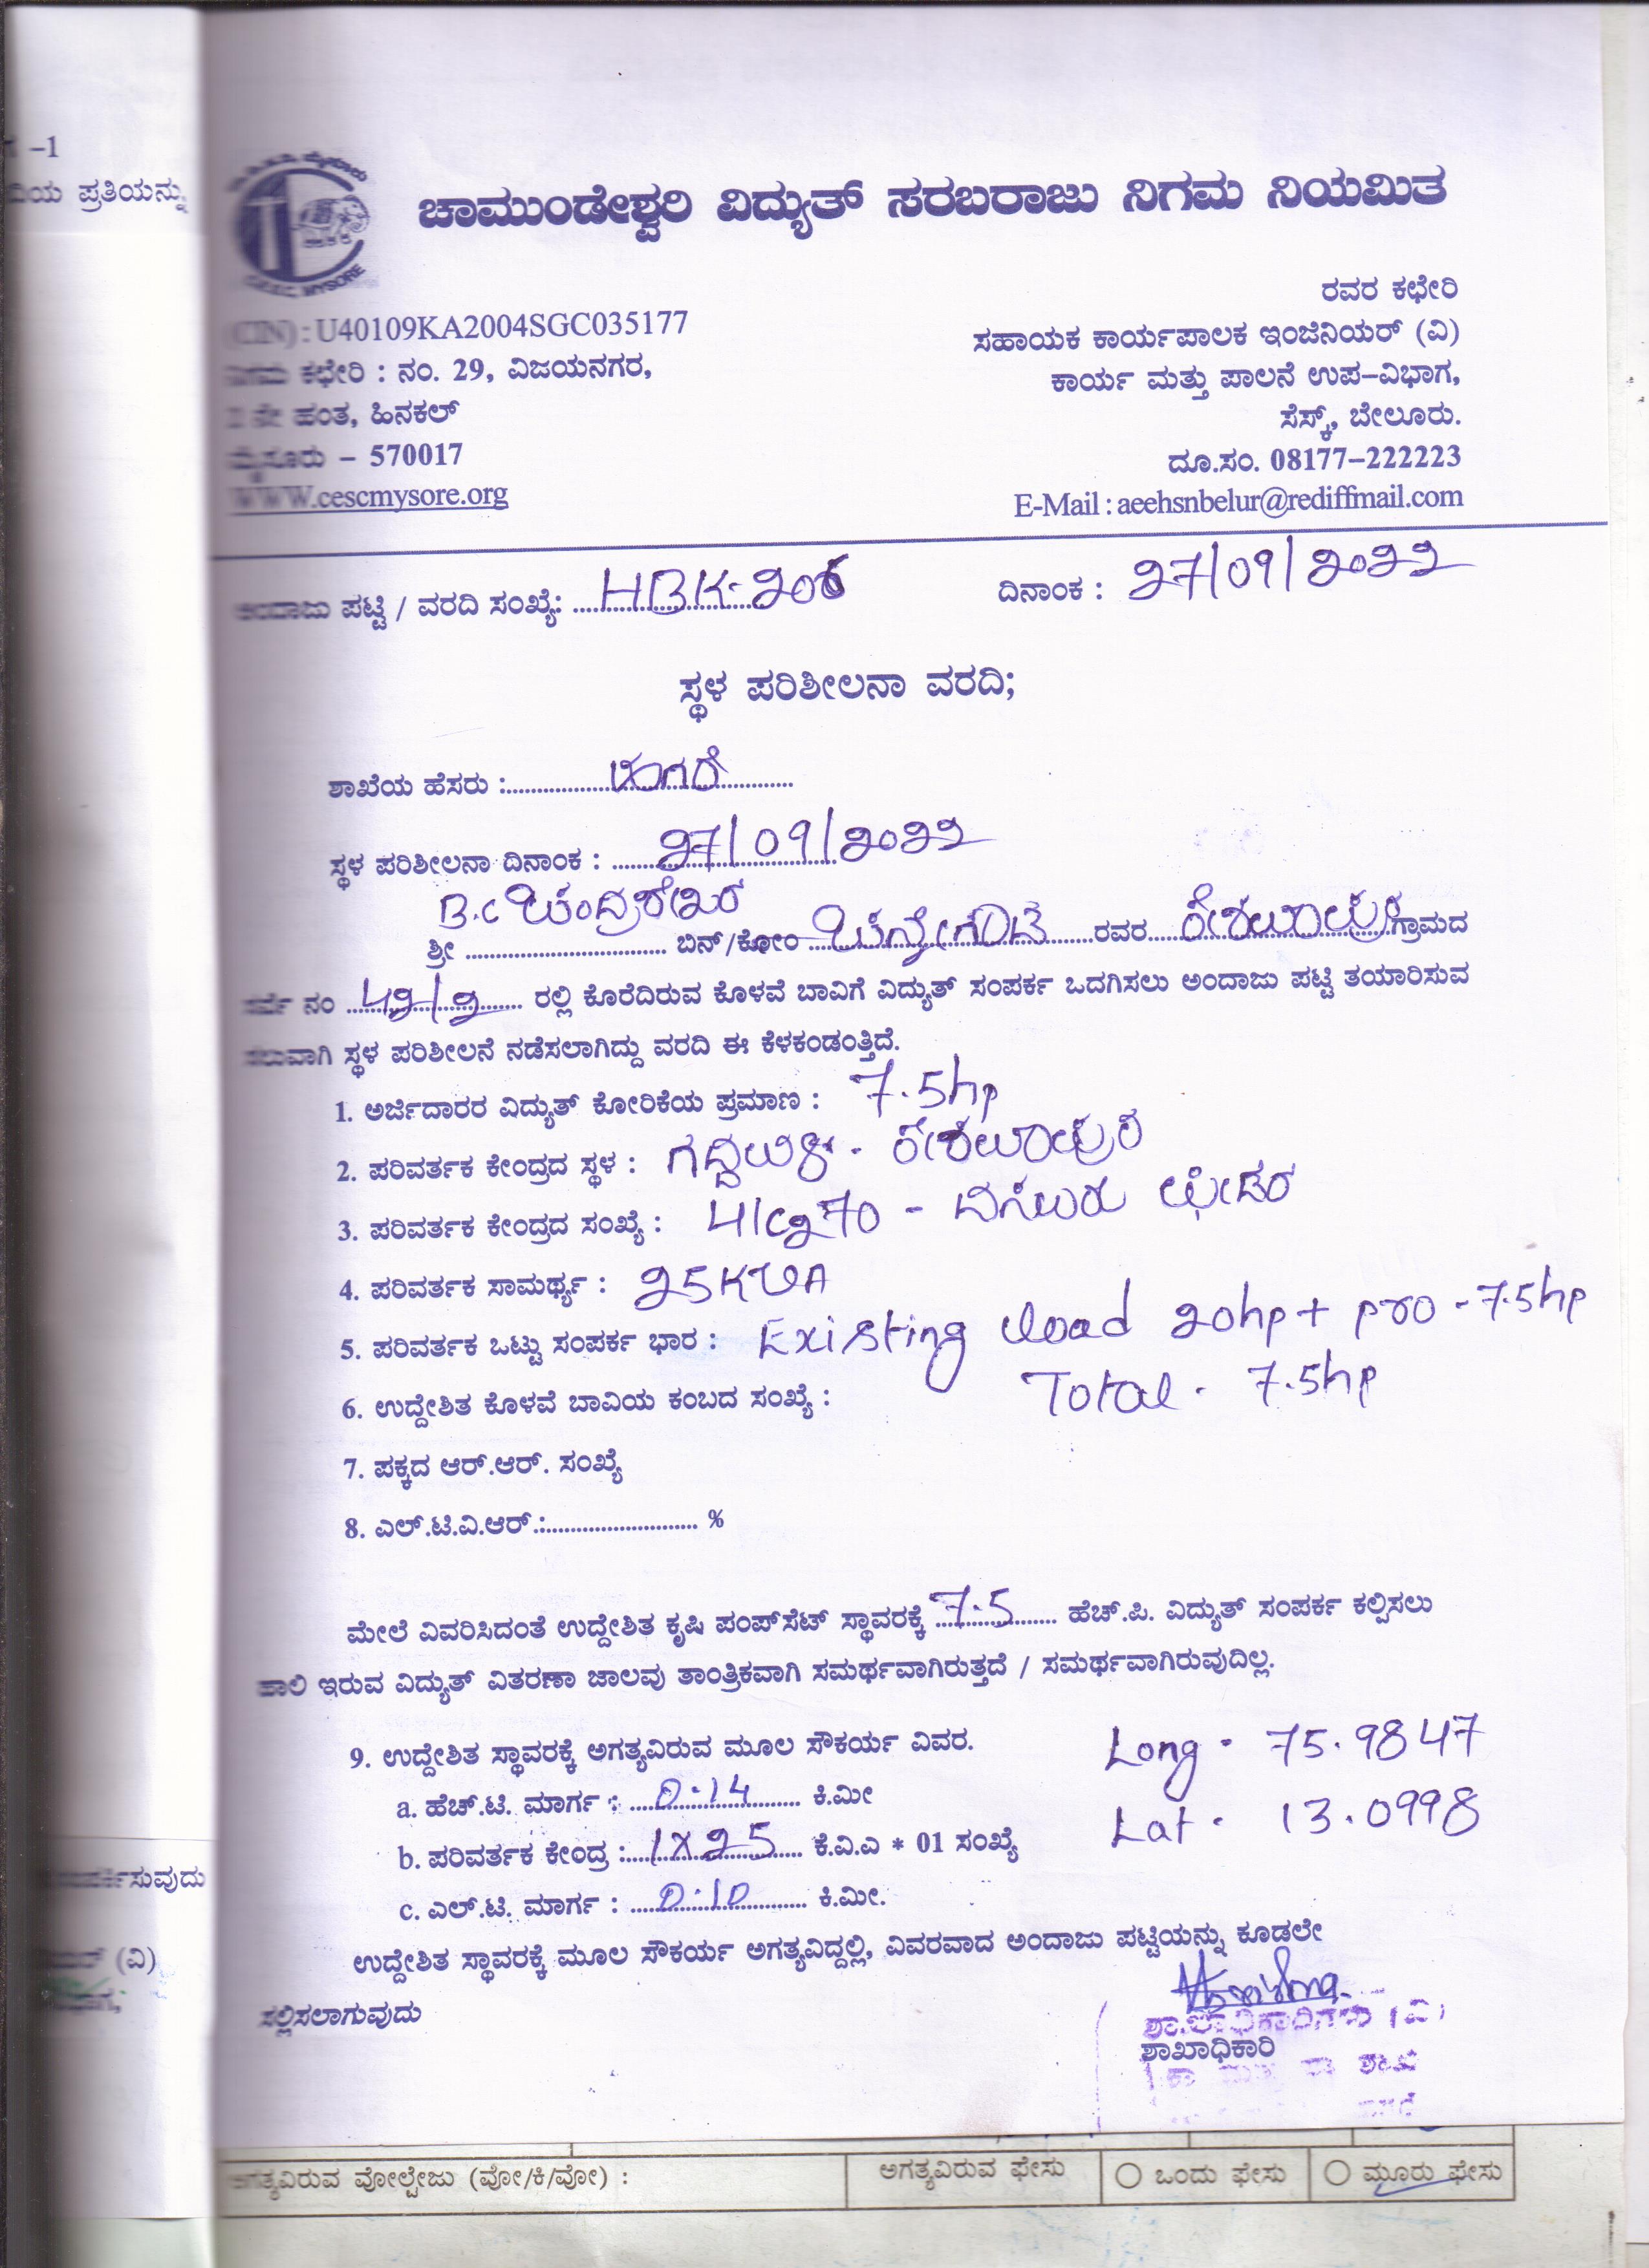 -1
ಪ್ರತಿಯನ್ನು
ಚಾಮುಂಡೇಶ್ವರಿ ವಿದ್ಯುತ್ ಸರಬರಾಜು ನಿಗಮ ನಿಯಮಿತ
ರವರ ಕಛೇರಿ
(CIN) : U40109KA2004SGC035177
ಸಹಾಯಕ ಕಾರ್ಯಪಾಲಕ ಇಂಜಿನಿಯರ್ (ವಿ)
ನಿಗಮ ಕಛೇರಿ : ನಂ. 29, ವಿಜಯನಗರ,
ಕಾರ್ಯ ಮತ್ತು ಪಾಲನೆ ಉಪ-ವಿಭಾಗ,
ನೇ ಹಂತ, ಹಿನಕಲ್
ಸೆಸ್ಕ್, ಬೇಲೂರು.
ಮೈಸೂರು - 570017
ದೂ.ಸಂ. 08177-222223
WWW.cescmysore.org
E-Mail : aeehsnbelur@rediffmail.com
ಅಂದಾಜು ಪಟ್ಟಿ / ವರದಿ ಸಂಖ್ಯೆ: HBK-206 ದಿನಾಂಕ : 27/09/2022
ಸ್ಥಳ ಪರಿಶೀಲನಾ ವರದಿ;
ಶಾಖೆಯ ಹೆಸರು : ಹಗರೆ
ಸ್ಥಳ ಪರಿಶೀಲನಾ ದಿನಾಂಕ : 27/09/2022
B.C ಚಂದ್ರಶೇಖರ್
ಶ್ರೀ ............ ಬಿನ್/ಕೋಂ ಚನ್ನೇಗೌಡ ರವರ ಗ್ರಾಮದ
ಸರ್ವೆ ನಂ 42/2 ರಲ್ಲಿ ಕೊರೆದಿರುವ ಕೊಳವೆ ಬಾವಿಗೆ ವಿದ್ಯುತ್ ಸಂಪರ್ಕ ಒದಗಿಸಲು ಅಂದಾಜು ಪಟ್ಟಿ ತಯಾರಿಸುವ
ಸಲುವಾಗಿ ಸ್ಥಳ ಪರಿಶೀಲನೆ ನಡೆಸಲಾಗಿದ್ದು ವರದಿ ಈ ಕೆಳಕಂಡಂತ್ತಿದೆ.
1. ಅರ್ಜಿದಾರರ ವಿದ್ಯುತ್ ಕೋರಿಕೆಯ ಪ್ರಮಾಣ : 7.5hp
2. ಪರಿವರ್ತಕ ಕೇಂದ್ರದ ಸ್ಥಳ :
3. ಪರಿವರ್ತಕ ಕೇಂದ್ರದ ಸಂಖ್ಯೆ : ಫೀಡರ್
4. ಪರಿವರ್ತಕ ಸಾಮರ್ಥ್ಯ : 25KVA
5. ಪರಿವರ್ತಕ ಒಟ್ಟು ಸಂಪರ್ಕ ಭಾರ : Existing load 20hp + pro - 7.5hp
6. ಉದ್ದೇಶಿತ ಕೊಳವೆ ಬಾವಿಯ ಕಂಬದ ಸಂಖ್ಯೆ : Total - 7.5hp
7. ಪಕ್ಕದ ಆರ್.ಆರ್. ಸಂಖ್ಯೆ
8. ಎಲ್.ಟಿ.ವಿ.ಆರ್.:............ %
ಮೇಲೆ ವಿವರಿಸಿದಂತೆ ಉದ್ದೇಶಿತ ಕೃಷಿ ಪಂಪ್‌ಸೆಟ್ ಸ್ಥಾವರಕ್ಕೆ 7.5 ಹೆಚ್.ಪಿ. ವಿದ್ಯುತ್ ಸಂಪರ್ಕ ಕಲ್ಪಿಸಲು
ಹಾಲಿ ಇರುವ ವಿದ್ಯುತ್ ವಿತರಣಾ ಜಾಲವು ತಾಂತ್ರಿಕವಾಗಿ ಸಮರ್ಥವಾಗಿರುತ್ತದೆ / ಸಮರ್ಥವಾಗಿರುವುದಿಲ್ಲ.
9. ಉದ್ದೇಶಿತ ಸ್ಥಾವರಕ್ಕೆ ಅಗತ್ಯವಿರುವ ಮೂಲ ಸೌಕರ್ಯ ವಿವರ. Long - 75.9847
a. ಹೆಚ್.ಟಿ. ಮಾರ್ಗ : 0.14 ಕಿ.ಮೀ
Lat - 13.0998
b. ಪರಿವರ್ತಕ ಕೇಂದ್ರ : 1X25 ಕೆ.ವಿ.ಎ * 01 ಸಂಖ್ಯೆ
c. ಎಲ್.ಟಿ. ಮಾರ್ಗ : 0.10 ಕಿ.ಮೀ.
ಉದ್ದೇಶಿತ ಸ್ಥಾವರಕ್ಕೆ ಮೂಲ ಸೌಕರ್ಯ ಅಗತ್ಯವಿದ್ದಲ್ಲಿ, ವಿವರವಾದ ಅಂದಾಜು ಪಟ್ಟಿಯನ್ನು ಕೂಡಲೇ
ಸಲ್ಲಿಸಲಾಗುವುದು
ಶಾಖಾಧಿಕಾರಿಗಳು (ವಿ)
ಶಾಖಾಧಿಕಾರಿ
ಅಗತ್ಯವಿರುವ ವೋಲ್ಟೇಜು (ವೋ/ಕಿ/ವೋ) : ಅಗತ್ಯವಿರುವ ಫೇಸು ಒಂದು ಫೇಸು ಮೂರು ಫೇಸು